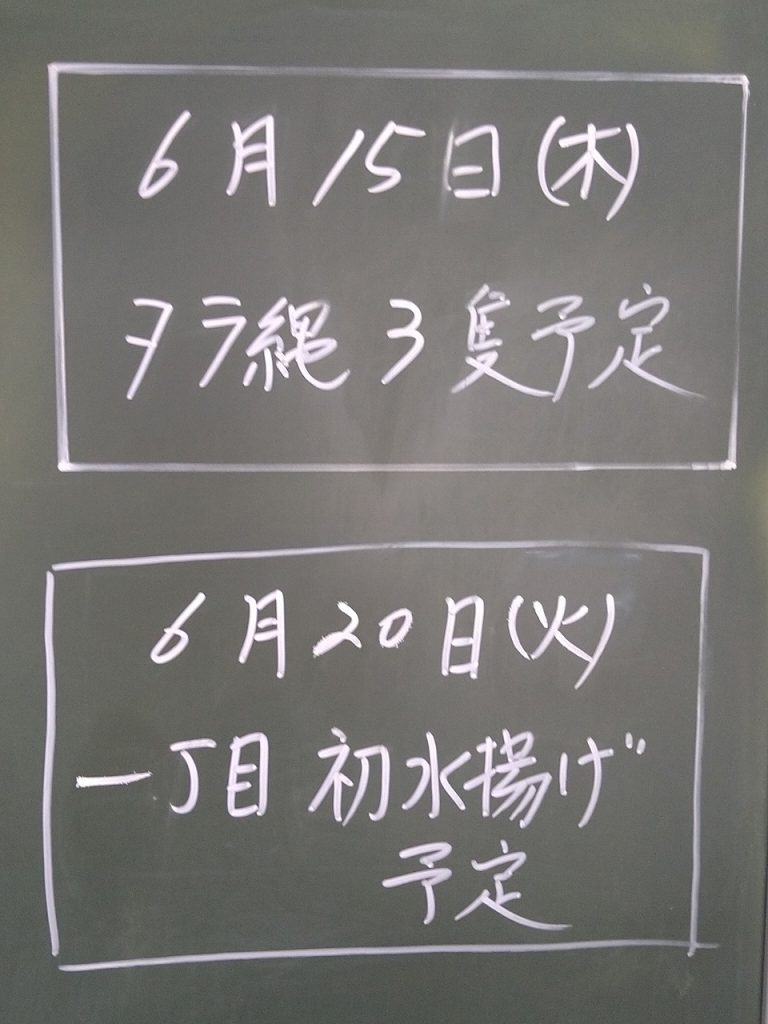 6月15日(木)
タラ縄 3隻予定
6月20日(火)
一丁目 初水揚げ
予定